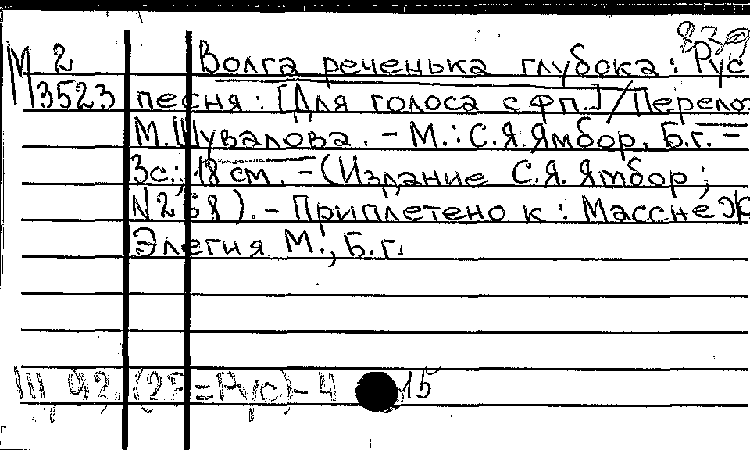 839
М 2 Волга реченька глубока: Рус
М3523 песня: [Для голоса с фп.] / Перелож
М. Шувалова. – М.: С.Я. Ямбор, Б.г. –
3с.; 18 см. – (Издание С.Я. Ямбор;
N 268). – Приплетено к: Массне Ж
Элегия М., Б.г.
Ш 92. (2Р=Рус) – 4 15